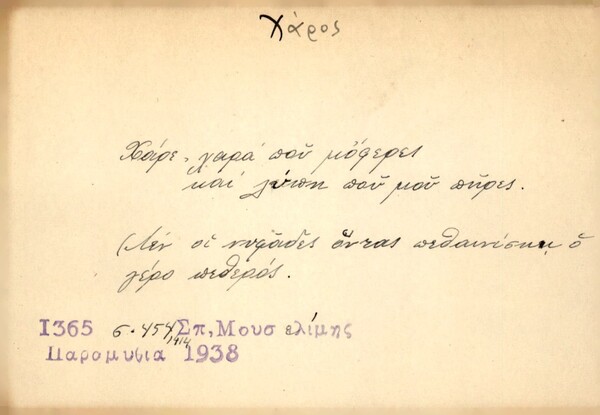 Χάρος
Χάρε, χαρά ποῦ μὄφερες
καί λύπη ποῦ μοῦ πῆρες.
(Λέν οἱ νυφάδες ὄντας πεθαινίσκῃ ὁ
γέρο πεθερός.
1365 σ. 454/1414 Σπ, Μουσελίμης
Παραμυθια 1938